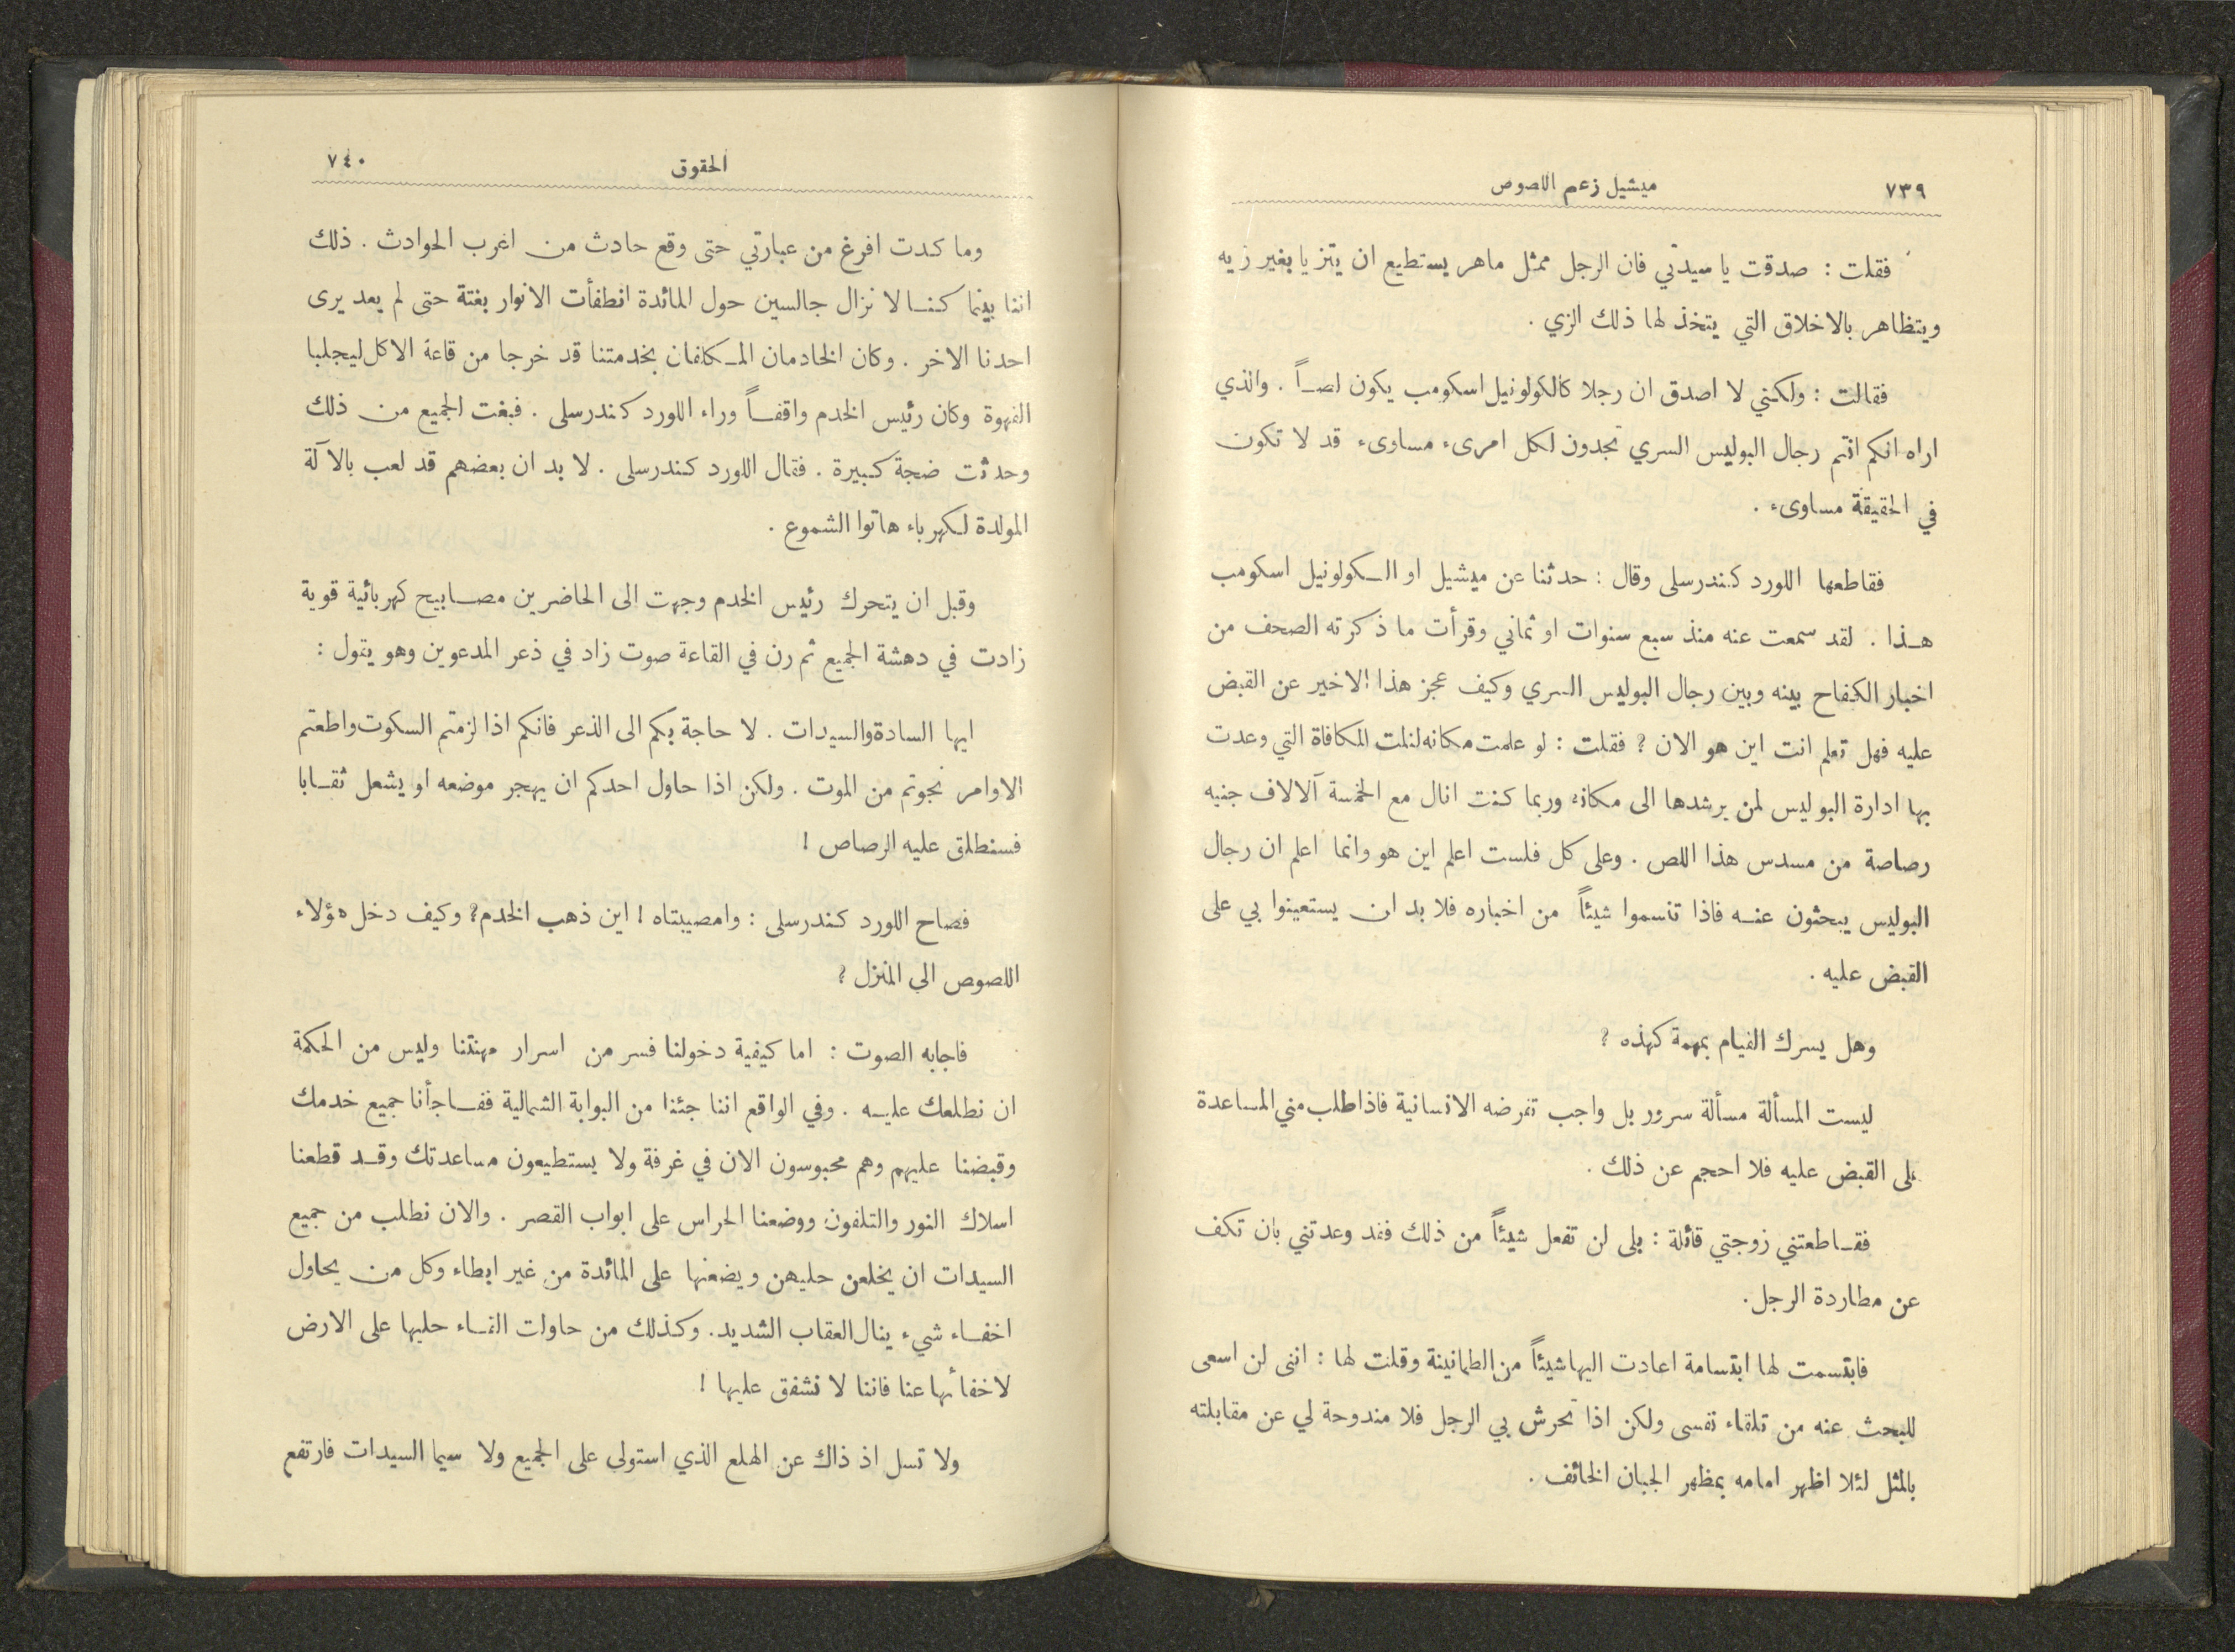 ٧٣٩ ميشيل زعيم اللصوص
فقلت : صدقت يا سيدتي فان الرجل ممثل ماهر يستطيع ان يتزيا بغير زيه
ويتظاهر بالاخلاق التي يتخذ لها ذلك الزي .
فقالت : ولكنني لا اصدق ان رجلا كالكولونيل اسكومب يكون لصاً . والذي
اراه انكم انتم رجال البوليس السري تجدون لكل امرىء مساوىء قد لا تكون
في الحقيقة مساوىء .
فقاطعها اللورد كندرسلى وقال : حدثنا عن ميشيل او الكولونيل اسكومب
هذا . لقد سمعت عنه منذ سبع سنوات او ثماني وقرأت ما ذكرته الصحف من
اخبار الكفاح بينه وبين رجال البوليس السري وكيف عجز هذا الاخير عن القبض
عليه فهل تعلم انت اين هو الان ? فقلت : لو علمت مكانه لنلت المكافاة التي وعدت
بها ادارة البوليس لمن يرشدها الى مكانه وربما كنت انال مع الخمسة آلالاف جنيه
رصاصة من مسدس هذا اللص . وعلى كل فلست اعلم اين هو وانما اعلم ان رجال
البوليس يبحثون عنه فاذا تنسموا شيئاً من اخباره فلا بد ان يستعينوا بي على
القبض عليه .
وهل يسرك القيام بمهمة كهذه ?
ليست المسألة مسألة سرور بل واجب تفرضه الانسانية فاذا طلب مني المساعدة
على القبض عليه فلا احجم عن ذلك .
فقاطعتني زوجتي قائلة : بلى لن تفعل شيئاً من ذلك فقد وعدتني بان تكف
عن مطاردة الرجل .
فابتسمت لها ابتسامة اعادت اليها شيئاً من الطمانينة وقلت لها : انى لن اسعى
للبحث عنه من تلقاء نفسى ولكن اذا تحرش بي الرجل فلا مندوحة لي عن مقابلته
بالمثل لئلا اظهر امامه بمظهر الجبان الخائف .
الحقوق ٧٤٠
وما كدت افرغ من عبارتي حتى وقع حادث من اغرب الحوادث . ذلك
اننا بينما كنا لا نزال جالسين حول المائدة انطفأت الانوار بغتة حتى لم يعد يرى
احدنا الاخر . وكان الخادمان المكلفان بخدمتنا قد خرجا من قاعة الاكل ليجلبا
القهوة وكان رئيس الخدم واقفاً وراء اللورد كندرسلى . فبغت الجميع من ذلك
وحدثت ضجة كبيرة . فقال اللورد كندرسلى . لا بد ان بعضهم قد لعب بالآلة
المولدة لكهرباء هاتوا الشموع .
وقبل ان يتحرك رئيس الخدم وجهت الى الحاضرين مصابيح كهربائية قوية
زادت في دهشة الجميع ثم رن في القاعة صوت زاد في ذعر المدعوين وهو يقول :
ايها السادة والسيدات . لا حاجة بكم الى الذعر فانكم اذا لزمتم السكوت واطعتم
الاوامر نجوتم من الموت . ولكن اذا حاول احدكم ان يهجر موضعه او يشعل ثقابا
فسنطلق عليه الرصاص !
فصاح اللورد كندرسلى : وامصيبتاه ! اين ذهب الخدم? وكيف دخل هؤلاء
اللصوص الى المنزل ?
فاجابه الصوت : اما كيفية دخولنا فسر من اسرار مهنتنا وليس من الحكمة
ان نطلعك عليه . وفي الواقع اننا جئنا من البوابة الشمالية ففاجأنا جميع خدمك
وقبضنا عليهم وهم محبوسون الان في غرفة ولا يستطيعون مساعدتك وقد قطعنا
اسلاك النور والتلفون ووضعنا الحراس على ابواب القصر . والان نطلب من جميع
السيدات ان يخلعن حليهن ويضعنها على المائدة من غير ابطاء وكل من يحاول
اخفاء شيء ينال العقاب الشديد . وكذلك من حاولت القاء حليها على الارض
لاخفائها عنا فاننا لا نشفق عليها !
ولا تسل اذ ذاك عن الهلع الذي استولى على الجميع ولا سيما السيدات فارتفع